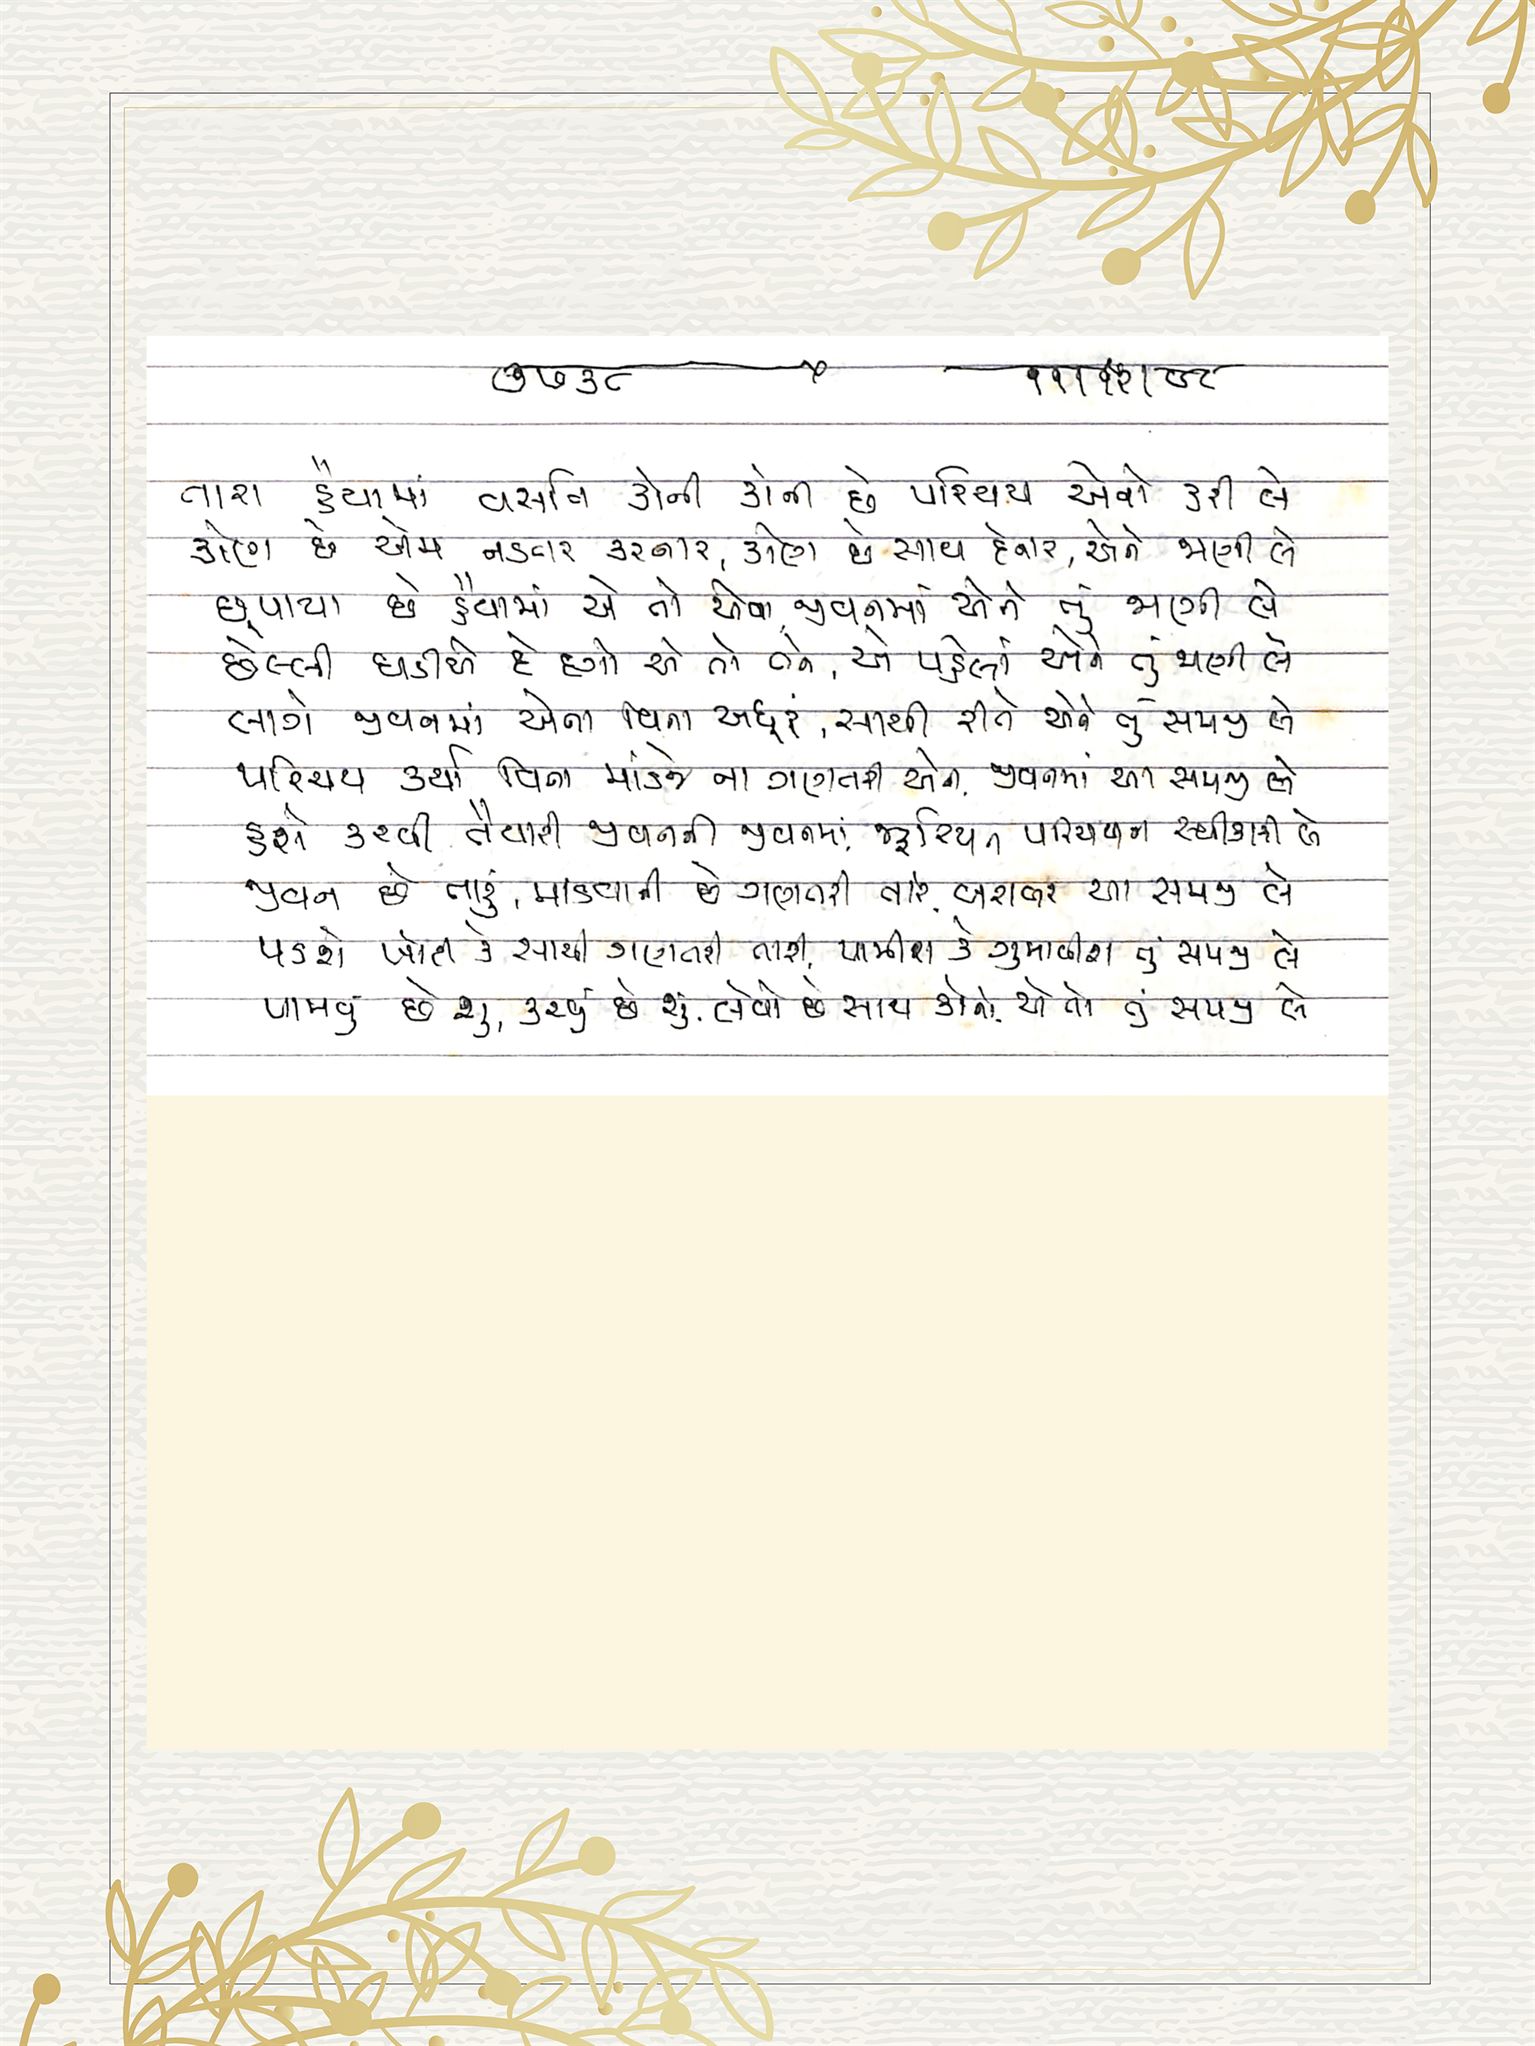 ૭૫૩૮ ૧૧/૧૨/૯૮
તારા હૈયામાં વસતિ કોની કોની છે પરિચય એનો કરી લે
કોણ છે એમાં નડતર કરનાર, કોણ છે સાથ દેનાર, એને જાણી લે
છૂપાયા છે હૈયામાં એ તો એવા, જીવનમાં એને તું જાણી લે
છેલ્લી ઘડીએ દે દગો એ તો તને, એ પહેલાં એને તું જાણી લે
લાગે જીવનમાં એના વિના અધૂરું, સાચી રીતે એને તું સમજી લે
પરિચય કર્યા વિના માંડજે ના ગણતરી એની, જીવનમાં આ સમજી લે
હશે કરવી તૈયારી જીવનની જીવનમાં, જરૂરિયાત પરિચયની સ્વીકારી લે
જીવન છે તારું, માંડવાની છે ગણતરી તારે, બરાબર આ સમજી લે
પડશે ખોટી કે સાચી ગણતરી તારી, પામીશ કે ગુમાવીશ તું સમજી લે
પામવું છે શું, કરવું છે શું, લેવો છે સાથ કોનો, એ તો તું સમજી લે